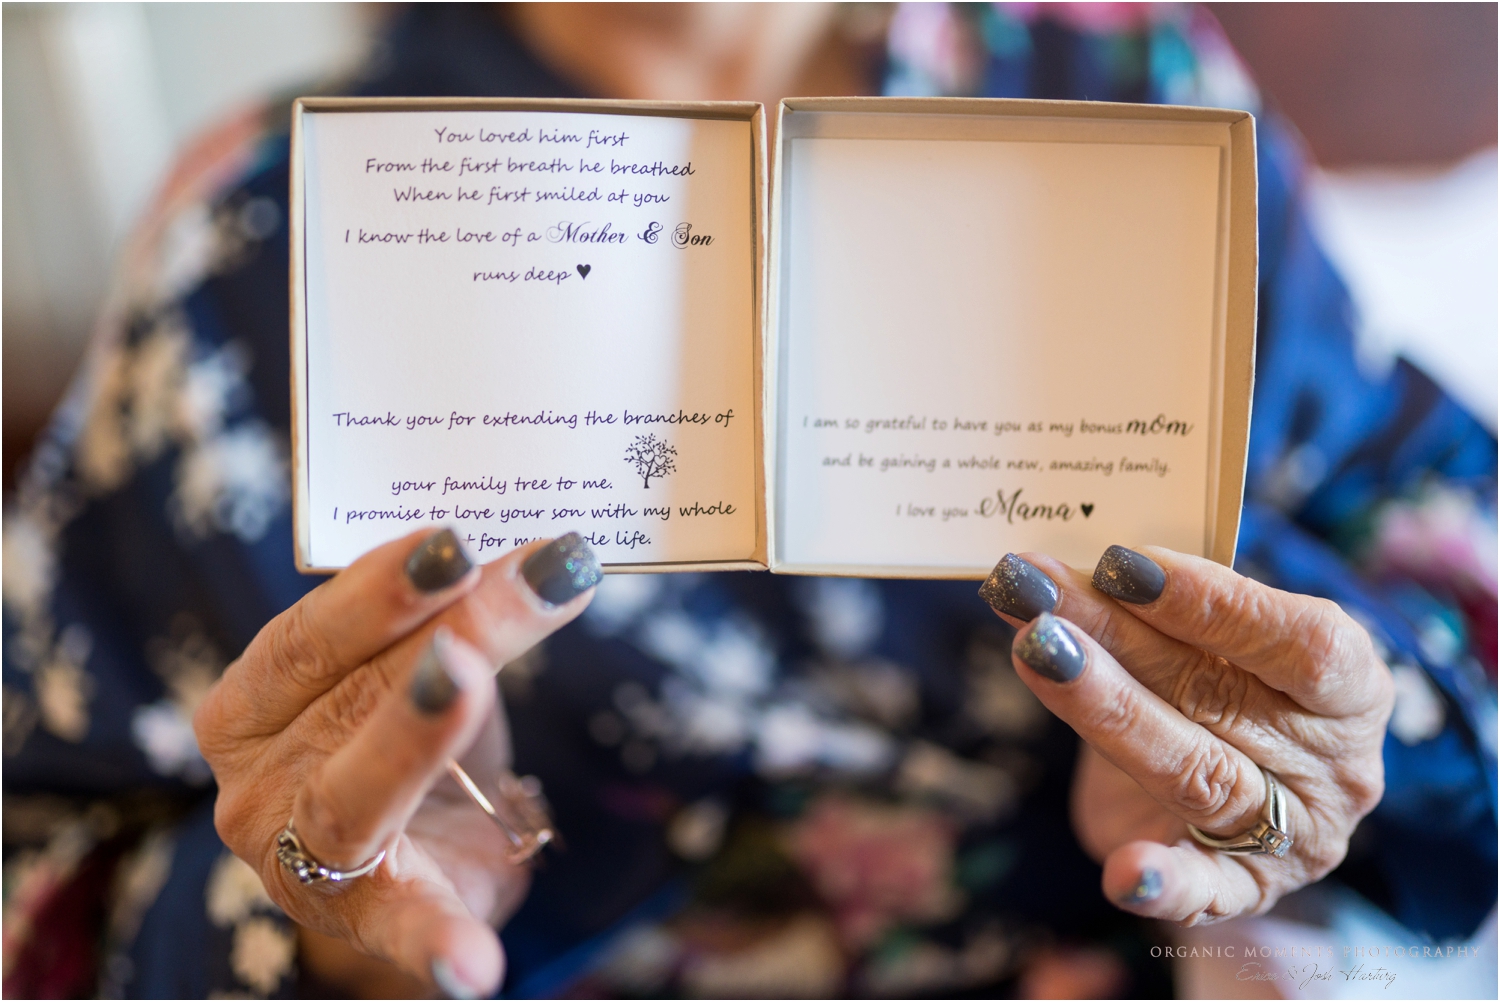 You loved him first
From the first breath he breathed
When he first smiled at you
I know the love of a Mother & Son
runs deep ♥
Thank you for extending the branches of
your family tree to me.
I promise to love your son with my whole
for my life.
I am so grateful to have you as my bonus mom
and be gaining a whole new, amazing family.
I love you Mama ♥
ORGANIC MOMENTS PHOTOGRAPHY
& Josh Hartwig